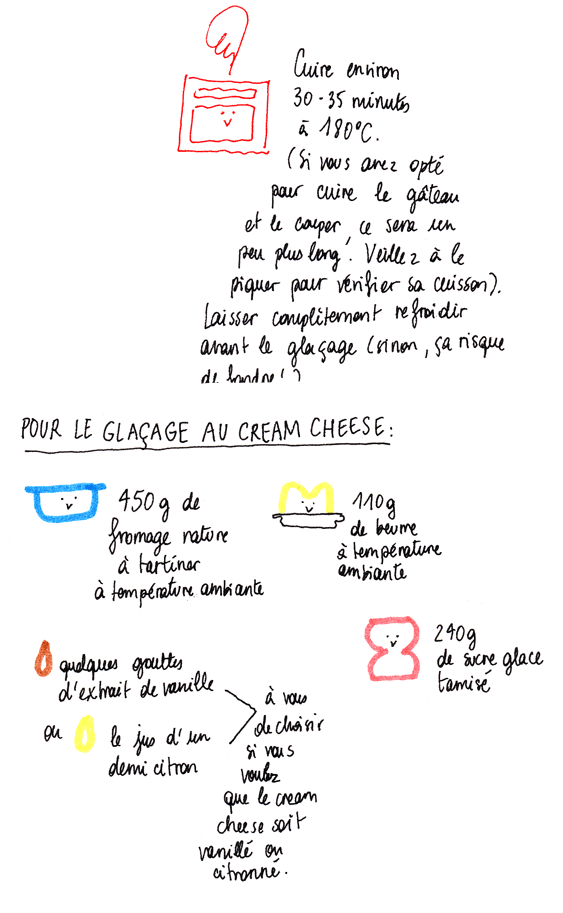 Cuire environ
30-35 minutes
à 180°C.
(Si vous avez opté
pour cuire le gâteau
et le couper, ce sera un
peu plus long! Veillez à le
piquer pour vérifier sa cuisson).
Laisser complètement refroidir
avant le glaçage (sinon, ça risque
de fondre!)
POUR LE GLAÇAGE AU CREAM CHEESE:
450g de
fromage nature
à tartiner
à température ambiante
110g
de beurre
à température
ambiante
240g
de sucre glace
tamisé
quelques gouttes
d'extrait de vanille
ou le jus d'un
demi citron
à vous
de choisir
si vous
voulez
que le cream
cheese soit
vanillé ou
citronné.